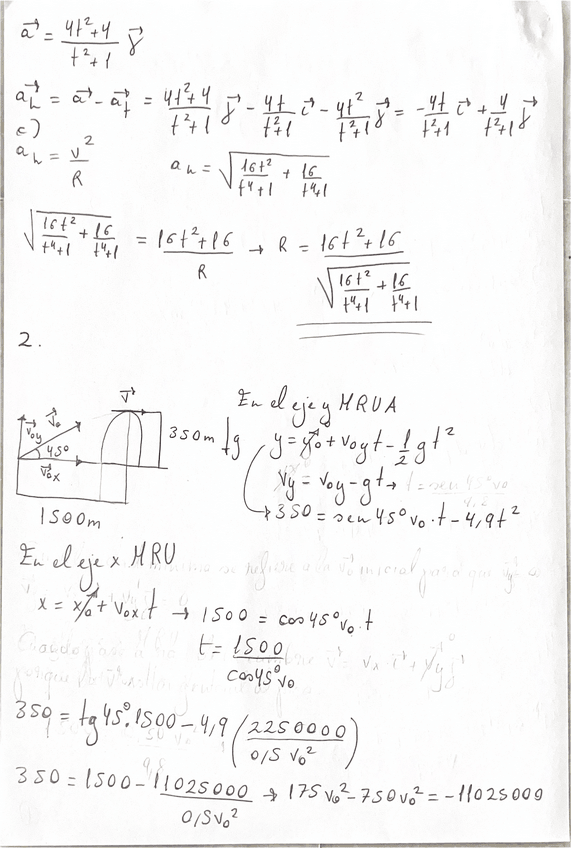 a⃗ = (4t²+4)/(t²+1) j⃗
a⃗ₙ = a⃗ - a⃗ₜ = (4t²+4)/(t²+1) j⃗ - 4t/(t²+1) i⃗ - 4t²/(t²+1) j⃗ = -4t/(t²+1) i⃗ + 4/(t²+1) j⃗
c)
aₙ = v²/R aₙ = √(16t²/(t⁴+1) + 16/(t⁴+1))
√(16t²/(t⁴+1) + 16/(t⁴+1)) = (16t²+16)/R → R = (16t²+16)/√(16t²/(t⁴+1) + 16/(t⁴+1))
2.
v⃗
v⃗oy v⃗o 45º v⃗ox
350m ↓g
1500m
En el eje y MRUA
y = yo + voy t - 1/2 g t²
vy = voy - gt →
→ 350 = sen 45º vo · t - 4,9t²
En el eje x MRU
x = xo + vox t → 1500 = cos 45º vo · t
t = 1500/(cos 45º vo)
350 = tg 45º · 1500 - 4,9 (2250000/(0,5 vo²))
350 = 1500 - 11025000/(0,5 vo²) → 175 vo² - 750 vo² = -11025000